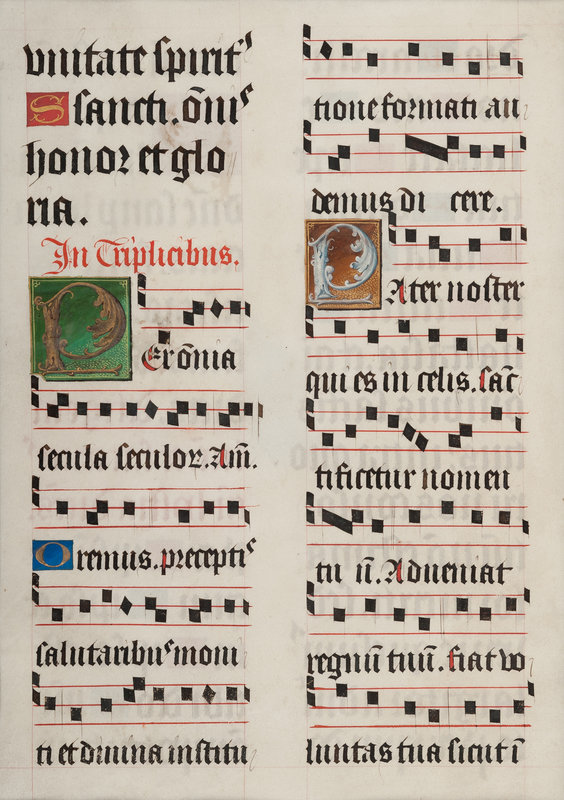 vnitate spirit⁹
Sancti. õni⁹
honor et glo
ria.
In Triplicibus.
Per õnia
secula seculoꝝ. Am̃.
Oremus. precepti⁹
salutaribu⁹ moni
ti et diuina institu
tione formati au
demus di cere.
PAter noster
qui es in celis. sãct
tificetur nomen
tu ũ. Adueniat
regnũ tuũ. fiat vo
luntas tua sicut ĩ